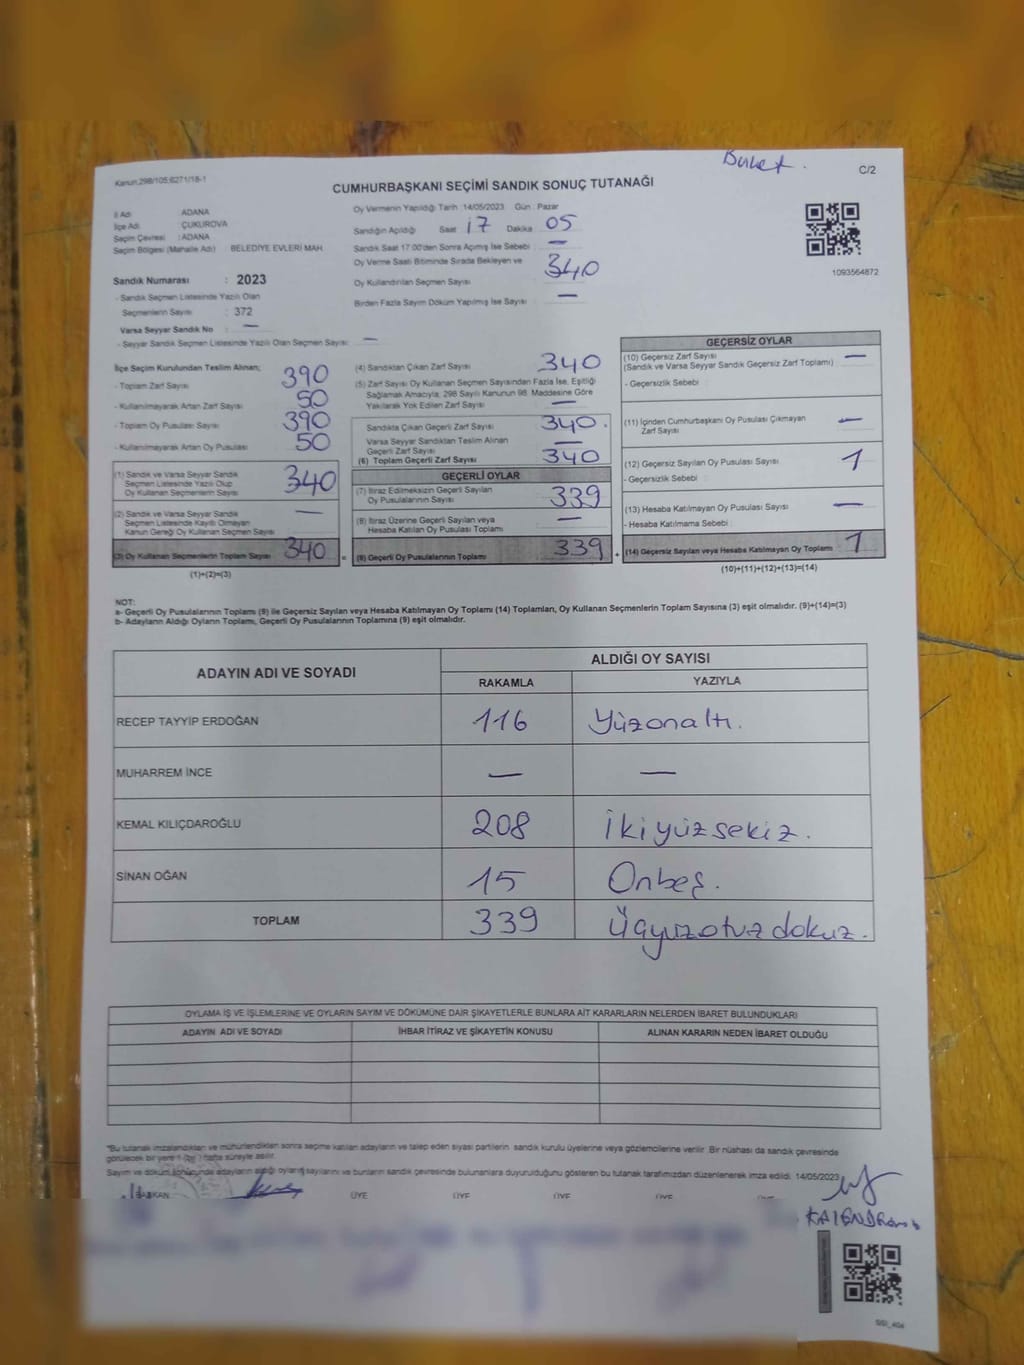 Buket.
Kanun.298/105;6271/18-1
C/2
CUMHURBAŞKANI SEÇİMİ SANDIK SONUÇ TUTANAĞI
İl Adı : ADANA
İlçe Adı : ÇUKUROVA
Seçim Çevresi : ADANA
Seçim Bölgesi (Mahalle Adı) BELEDİYE EVLERİ MAH.
Sandık Numarası : 2023
- Sandık Seçmen Listesinde Yazılı Olan
Seçmenlerin Sayısı : 372
Varsa Seyyar Sandık No : —
- Seyyar Sandık Seçmen Listesinde Yazılı Olan Seçmen Sayısı: —
Oy Vermenin Yapıldığı Tarih :14/05/2023 Gün : Pazar
Sandığın Açıldığı Saat 17 Dakika 05
Sandık Saat 17:00'den Sonra Açılmış İse Sebebi : —
Oy Verme Saati Bitiminde Sırada Bekleyen ve
Oy Kullandırılan Seçmen Sayısı 340
Birden Fazla Sayım Döküm Yapılmış İse Sayısı —
1093564872
İlçe Seçim Kurulundan Teslim Alınan;
- Toplam Zarf Sayısı 390
- Kullanılmayarak Artan Zarf Sayısı 50
- Toplam Oy Pusulası Sayısı 390
- Kullanılmayarak Artan Oy Pusulası 50
(1) Sandık ve Varsa Seyyar Sandık
Seçmen Listesinde Yazılı Olup
Oy Kullanan Seçmenlerin Sayısı 340
(2) Sandık ve Varsa Seyyar Sandık
Seçmen Listesinde Kayıtlı Olmayan
Kanun Gereği Oy Kullanan Seçmen Sayısı —
(3) Oy Kullanan Seçmenlerin Toplam Sayısı 340 =
(1)+(2)=(3)
(4) Sandıktan Çıkan Zarf Sayısı 340
(5) Zarf Sayısı Oy Kullanan Seçmen Sayısından Fazla İse, Eşitliği
Sağlamak Amacıyla, 298 Sayılı Kanunun 98. Maddesine Göre
Yakılarak Yok Edilen Zarf Sayısı —
Sandıkta Çıkan Geçerli Zarf Sayısı 340.
Varsa Seyyar Sandıktan Teslim Alınan
Geçerli Zarf Sayısı —
(6) Toplam Geçerli Zarf Sayısı 340
GEÇERLİ OYLAR
(7) İtiraz Edilmeksizin Geçerli Sayılan
Oy Pusulalarının Sayısı 339
(8) İtiraz Üzerine Geçerli Sayılan veya
Hesaba Katılan Oy Pusulası Toplamı —
(9) Geçerli Oy Pusulalarının Toplamı 339 +
GEÇERSİZ OYLAR
(10) Geçersiz Zarf Sayısı —
(Sandık ve Varsa Seyyar Sandık Geçersiz Zarf Toplamı)
- Geçersizlik Sebebi :
(11) İçinden Cumhurbaşkanı Oy Pusulası Çıkmayan
Zarf Sayısı —
(12) Geçersiz Sayılan Oy Pusulası Sayısı 1
- Geçersizlik Sebebi :
(13) Hesaba Katılmayan Oy Pusulası Sayısı —
- Hesaba Katılmama Sebebi :
(14) Geçersiz Sayılan veya Hesaba Katılmayan Oy Toplamı 1
(10)+(11)+(12)+(13)=(14)
NOT:
a- Geçerli Oy Pusulalarının Toplamı (9) ile Geçersiz Sayılan veya Hesaba Katılmayan Oy Toplamı (14) Toplamları, Oy Kullanan Seçmenlerin Toplam Sayısına (3) eşit olmalıdır. (9)+(14)=(3)
b- Adayların Aldığı Oyların Toplamı, Geçerli Oy Pusulalarının Toplamına (9) eşit olmalıdır.
ADAYIN ADI VE SOYADI ALDIĞI OY SAYISI
RAKAMLA YAZIYLA
RECEP TAYYİP ERDOĞAN 116 Yüzonaltı.
MUHARREM İNCE — —
KEMAL KILIÇDAROĞLU 208 İkiyüzsekiz.
SİNAN OĞAN 15 Onbeş.
TOPLAM 339 Üçyüzotuzdokuz.
OYLAMA İŞ VE İŞLEMLERİNE VE OYLARIN SAYIM VE DÖKÜMÜNE DAİR ŞİKAYETLERLE BUNLARA AİT KARARLARIN NELERDEN İBARET BULUNDUKLARI
ADAYIN ADI VE SOYADI İHBAR İTİRAZ VE ŞİKAYETİN KONUSU ALINAN KARARIN NEDEN İBARET OLDUĞU
*Bu tutanak imzalandıktan ve mühürlendikten sonra seçime katılan adayların ve talep eden siyasi partilerin sandık kurulu üyelerine veya gözlemcilerine verilir. Bir nüshası da sandık çevresinde
görülecek bir yere 1 (bir) hafta süreyle asılır.
Sayım ve döküm sonucunda adayların aldığı oyların sayılarını ve bunların sandık çevresinde bulunanlara duyurulduğunu gösteren bu tutanak tarafımızdan düzenlenerek imza edildi. 14/05/2023
BAŞKAN ÜYE ÜYE ÜYE ÜYE